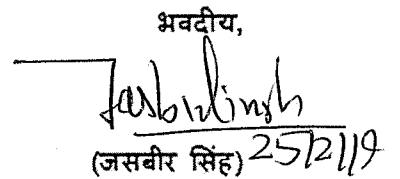 भवदीय,
Jasbir Singh
(जसबीर सिंह) 25/2/19